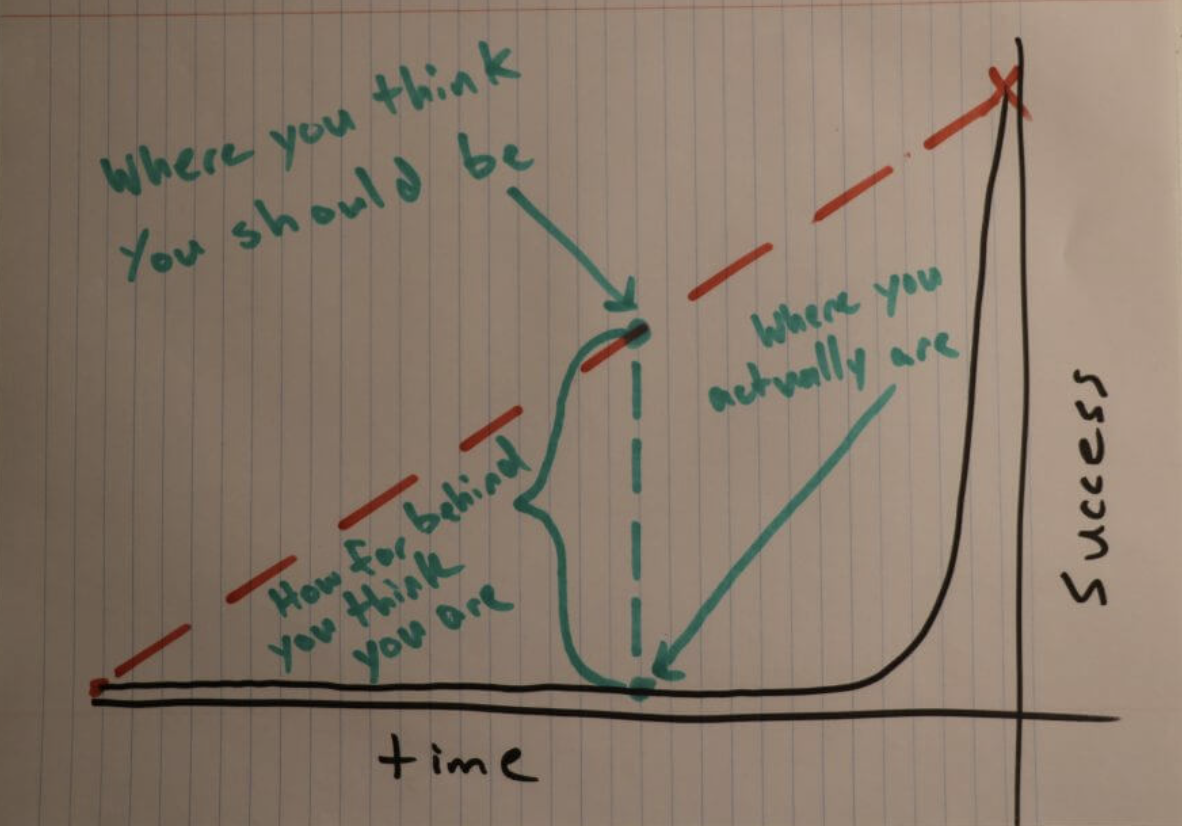 Where you think
you should be
Where you
actually are
How far behind
you think
you are
Success
time